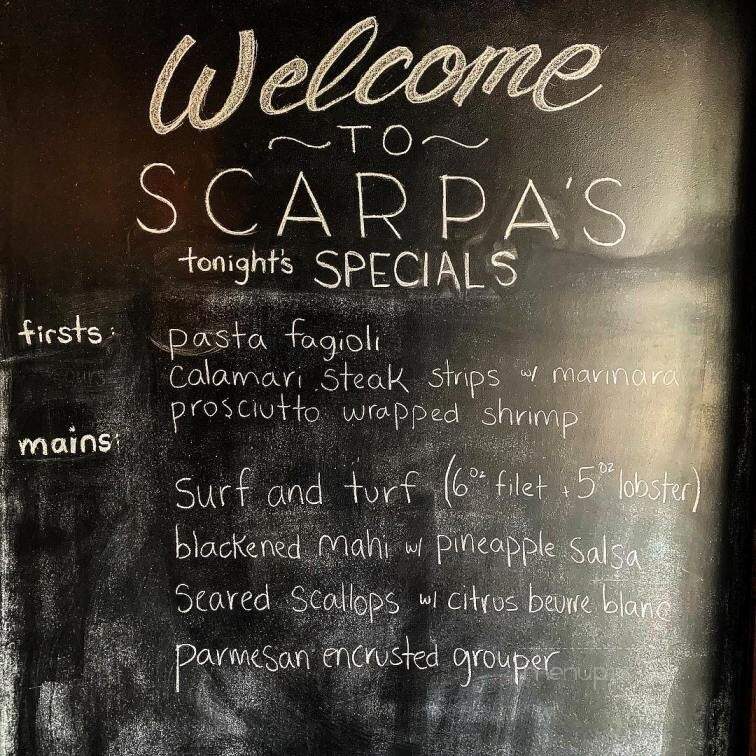 Welcome
~TO~
SCARPA'S
tonight's SPECIALS
firsts: pasta fagioli
calamari steak strips w/ marinara
prosciutto wrapped shrimp
mains:
surf and turf (6oz filet + 5oz lobster)
blackened mahi w/ pineapple salsa
Seared scallops w/ citrus beurre blanc
parmesan encrusted grouper